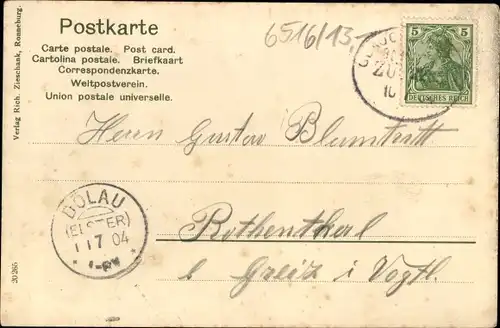 Postkarte
Carte postale. Post card.
Cartolina postale. Briefkaart
Correspondenzkarte.
Weltpostverein.
Union postale universelle.
6516/13
5 5
DEUTSCHES REICH
ZUG
10
Verlag Rich. Zieschank, Ronneburg.
Herrn Gustav Blumtritt
DÖLAU
(ELSTER)
1 7 04
Rothenthal
b Greiz i Vogtl.
20 265